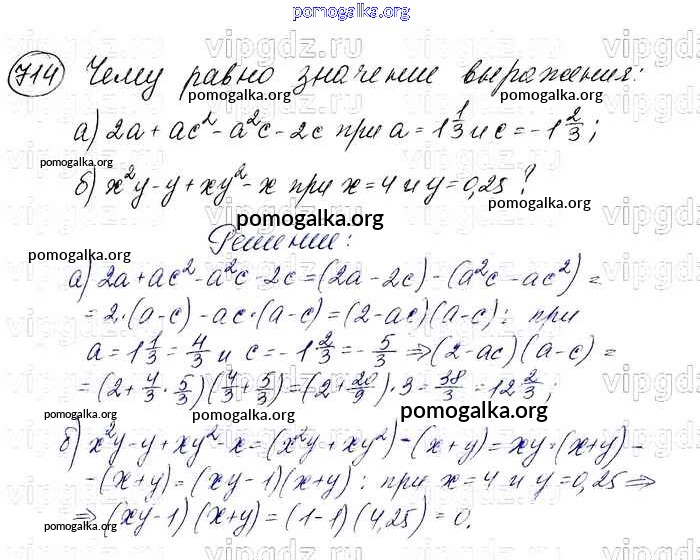 pomogalka.org
vipgdz.ru vipgdz.ru
714 Чему равно значение выражения:
pomogalka.org pomogalka.org
а) 2a + ac² - a²c - 2c при a = 1 1/3 и c = -1 2/3;
pomogalka.org
б) x²y - y + xy² - x при x = 4 и y = 0,25?
pomogalka.org
pomogalka.org
Решение:
pomogalka.org pomogalka.org
а) 2a + ac² - a²c - 2c = (2a - 2c) - (a²c - ac²) =
= 2·(a-c) - ac·(a-c) = (2-ac)(a-c); при
a = 1 1/3 = 4/3 и c = -1 2/3 = -5/3 ⇒ (2-ac)(a-c) =
= (2 + 4/3 · 5/3)(4/3 + 5/3) = (2 + 20/9) · 3 = 38/3 = 12 2/3;
pomogalka.org pomogalka.org pomogalka.org
б) x²y - y + xy² - x = (x²y + xy²) - (x+y) = xy·(x+y) -
- (x+y) = (xy-1)(x+y); при x = 4 и y = 0,25 ⇒
⇒ (xy-1)(x+y) = (1-1)(4,25) = 0.
pomogalka.org pomogalka.org
pomogalka.org